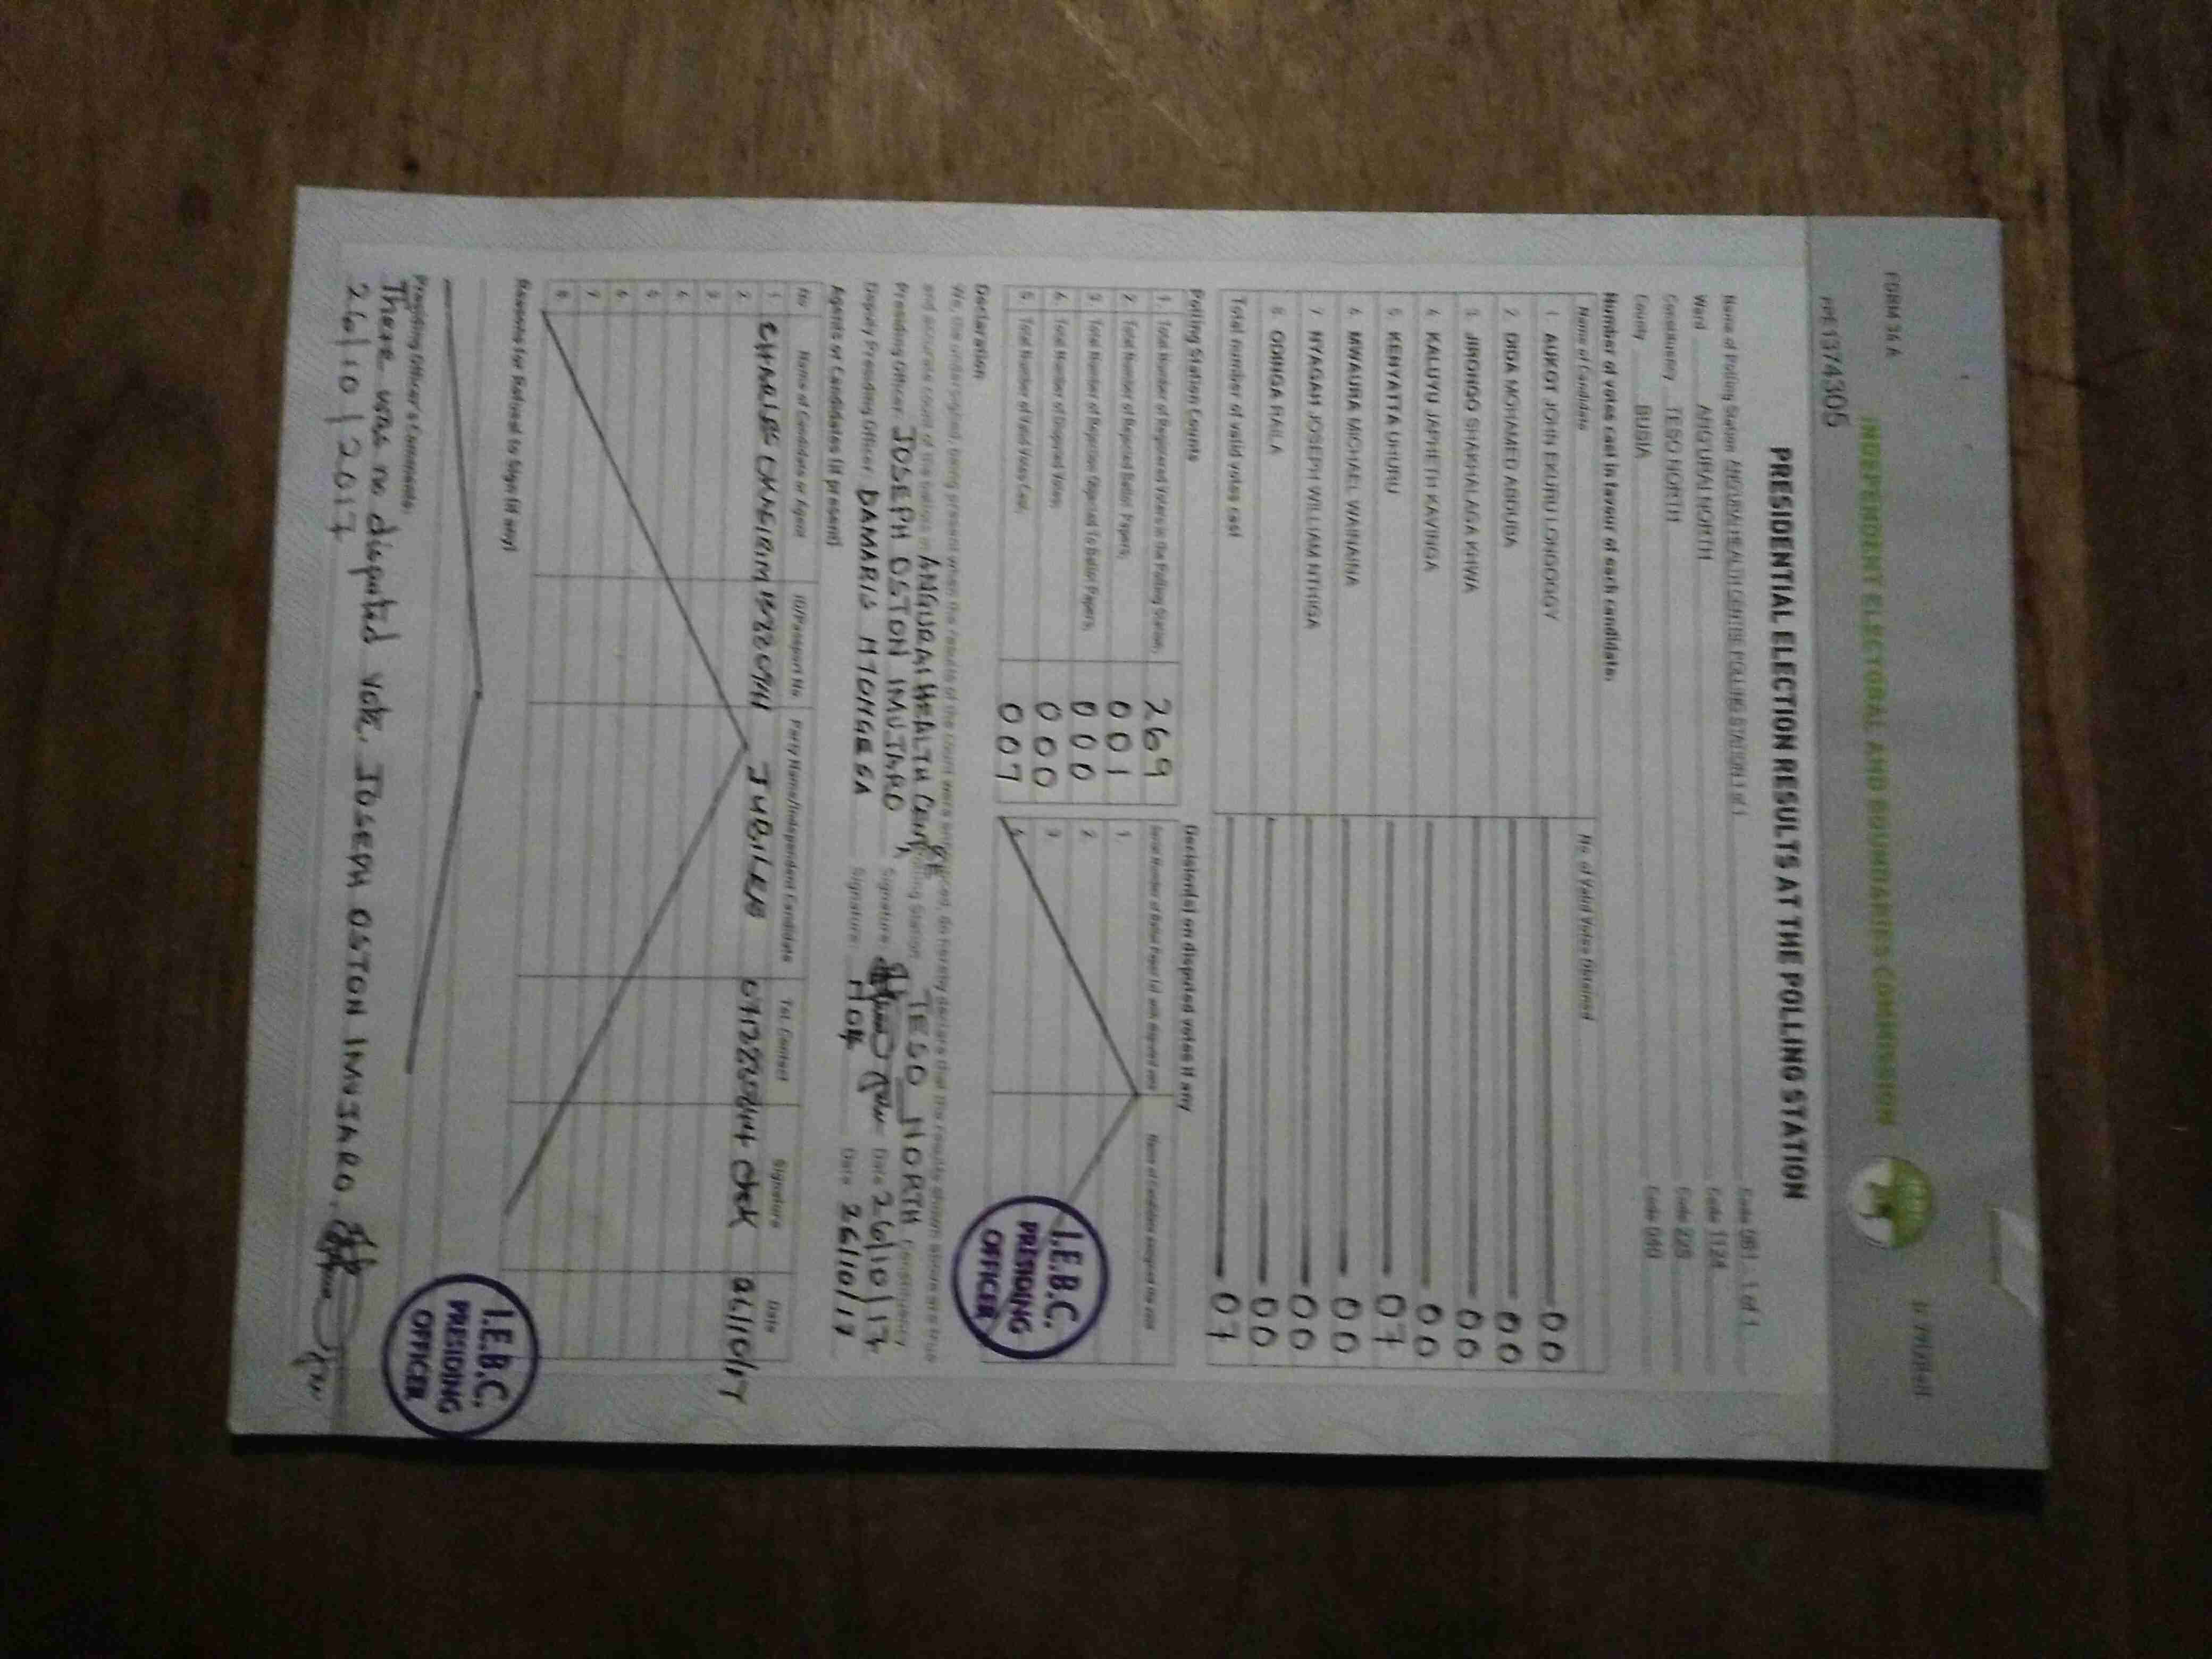 FORM 34 A
INDEPENDENT ELECTORAL AND BOUNDARIES COMMISSION
PRE1374305
PRESIDENTIAL ELECTION RESULTS AT THE POLLING STATION
Name of Polling Station ANGURAI HEALTH CENTRE POLLING STATION 1 of 1 Code 061 1 of 1
Ward ANG'URAI NORTH Code 1124
Constituency TESO NORTH Code 225
County BUSIA Code 040
Number of votes cast in favour of each candidate:
Name of Candidate No. of Valid Votes Obtained
1. AUKOT JOHN EKURU LONGOGGY 00
2. DIDA MOHAMED ABDUBA 00
3. JIRONGO SHAKHALAGA KHWA 00
4. KALUYU JAPHETH KAVINGA 00
5. KENYATTA UHURU 07
6. MWAURA MICHAEL WAINAINA 00
7. NYAGAH JOSEPH WILLIAM NTHIGA 00
8. ODINGA RAILA 00
Total number of valid votes cast 07
Polling Station Counts
1. Total Number of Registered Voters in the Polling Station; 269
2. Total Number of Rejected Ballot Papers; 001
3. Total Number of Rejection Objected To Ballot Papers; 000
4. Total Number of Disputed Votes; 000
5. Total Number of Valid Votes Cast; 007
Decision(s) on disputed votes if any
1.
2.
3.
4.
Declaration
We, the undersigned, being present when the results of the count were announced, do hereby declare that the results shown above are true
and accurate count of the ballots in ANGURAI HEALTH CENTRE Polling Station, TESO NORTH Constituency
Presiding Officer JOSEPH OSTON IMUJARO Signature Date 26/10/17
Deputy Presiding Officer DAMARIS Signature Date 26/10/17
Agents of Candidates (if present)
No Name of Candidate or Agent ID/Passport No. Party Name/Independent Candidate Tel. Contact Signature Date
1. CHARLES JUBILEE 26/10/17
2.
3.
4.
5.
6.
7.
8.
Reasons for Refusal to Sign (if any)
Presiding Officer's Comments:
There was no disputed vote. JOSEPH OSTON IMUJARO.
26/10/2017
I.E.B.C.
PRESIDING
OFFICER
I.E.B.C.
PRESIDING
OFFICER